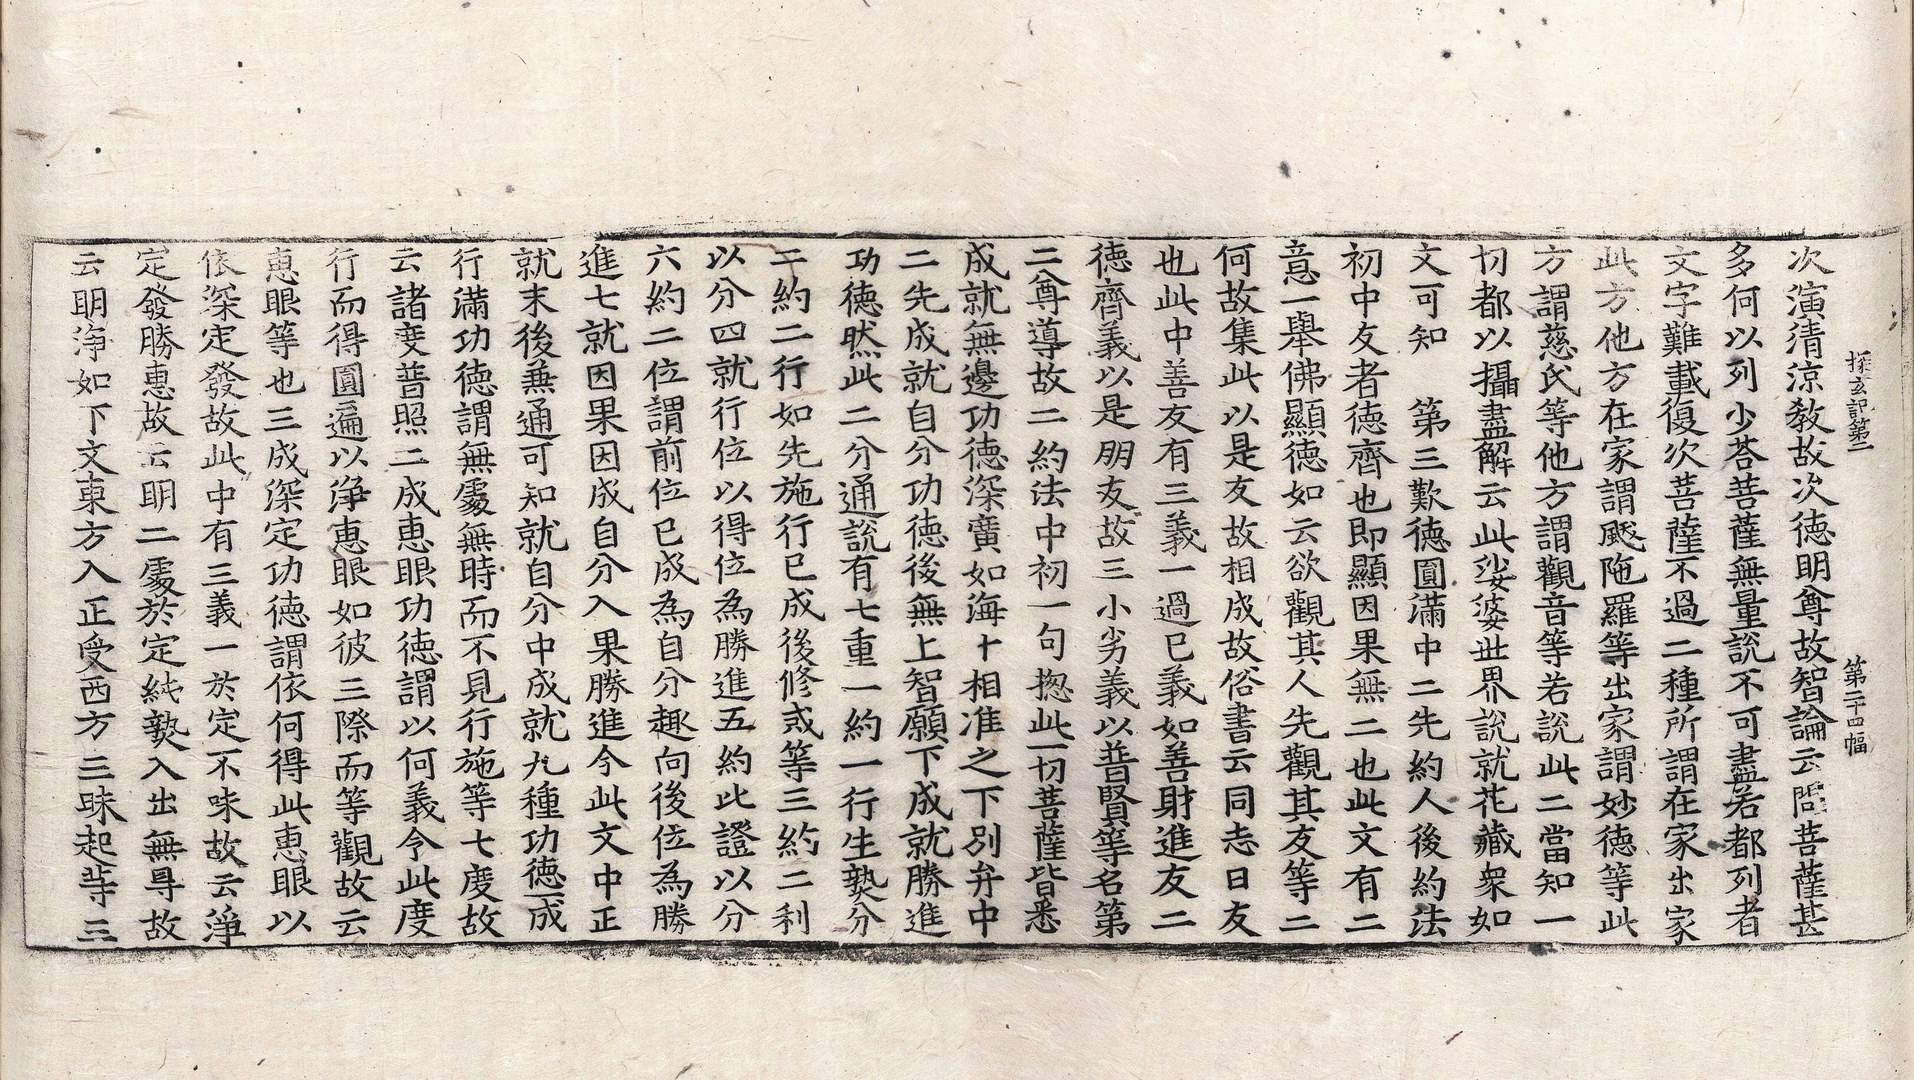 探玄記第二　第二十四幅
次演清涼教故次德明尊故智論云問菩薩甚
多何以列少荅菩薩無量說不可盡若都列者
文字難載復次菩薩不過二種所謂在家出家
此方他方在家謂颰陁羅等出家謂妙德等此
方謂慈氏等他方謂觀音等若說此二當知一
切都以攝盡解云此娑婆世界說就花藏衆如
文可知　第三歎德圓滿中二先約人後約法
初中友者德齊也即顯因果無二也此文有二
意一舉佛顯德如云欲觀其人先觀其友等二
何故集此以是友故相成故俗書云同志曰友
也此中善友有三義一過已義如善財進友二
德齊義以是朋友故三小劣義以普賢等名第
二尊導故二約法中初一句揔此一切菩薩皆悉
成就無邊功德深廣如海十相准之下別弁中
二先成就自分功德後無上智願下成就勝進
功德然此二分通說有七重一約一行生𤍨分
二約二行如先施行已成後修戒等三約二利
以分四就行位以得位為勝進五約比證以分
六約二位謂前位已成為自分趣向後位為勝
進七就因果因成自分入果勝進今此文中正
就末後兼通可知就自分中成就九種功德一成
行滿功德謂無處無時而不見行施等七度故
云諸度普照二成惠眼功德謂以何義令此度
行而得圓遍以淨惠眼如彼三際而等觀故云
惠眼等也三成深定功德謂依何得此惠眼以
依深定發故此中有三義一於定不味故云淨
定發勝惠故云明二處於定純𤍨入出無㝵故
云明淨如下文東方入正受西方三昧起等三